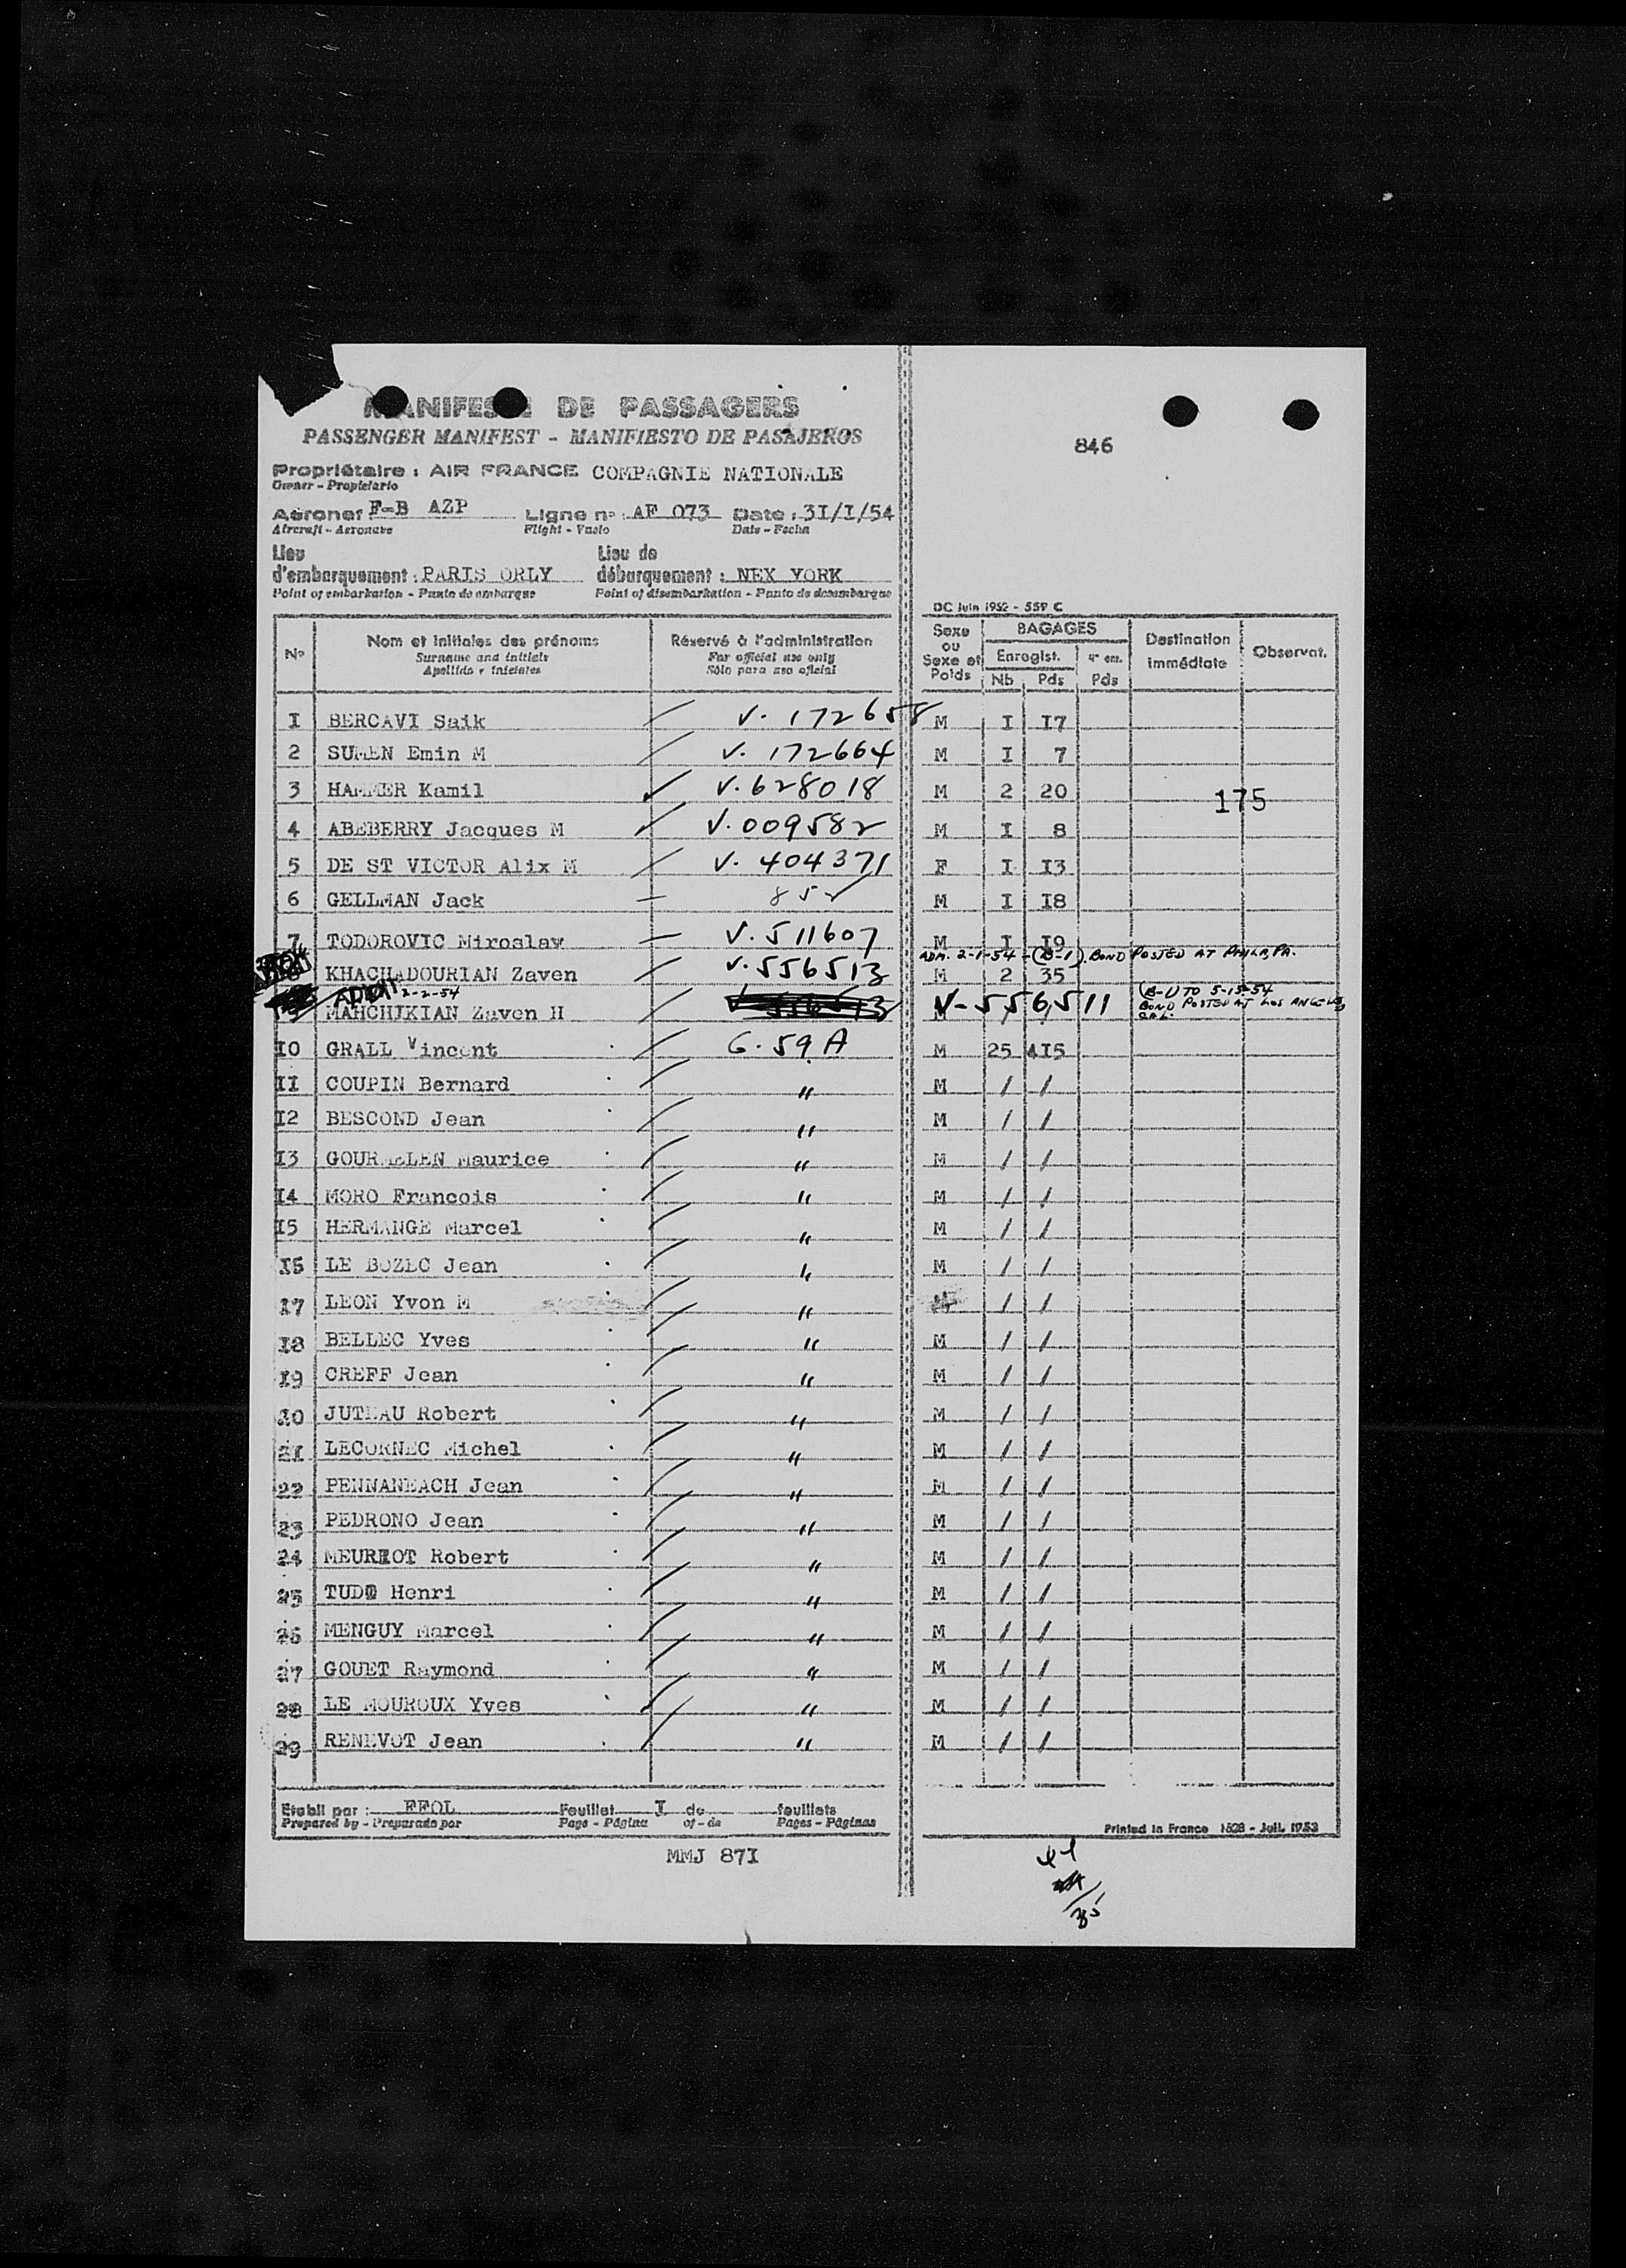 MANIFESTE DE PASSAGERS
PASSENGER MANIFEST - MANIFIESTO DE PASAJEROS
846
Propriétaire : AIR FRANCE COMPAGNIE NATIONALE
Owner - Propietario
Aéronef F-B AZP Ligne n° : AF 073 Date : 3I/I/54
Aircraft - Aeronave Flight - Vuelo Date - Fecha
Lieu d'embarquement : PARIS ORLY Lieu de débarquement : NEX YORK
Point of embarkation - Punto de embarque Point of disembarkation - Punto de desembarque
DC Juin 1952 - 559 C
N° Nom et initiales des prénoms Réservé à l'administration Sexe ou Sexe et Poids BAGAGES Destination immédiate Observat.
Surname and initials For official use only Enregist.
Apellido e iniciales Sólo para uso oficial Nb Pds Pds
I BERCAVI Saik V. 172658 M I I7
2 SUMEN Emin M V. 172664 M I 7
3 HAMMER Kamil V. 628018 M 2 20
175
4 ABEBERRY Jacques M V. 009582 M I 8
5 DE ST VICTOR Alix M V. 404371 F I I3
6 GELLMAN Jack 85 M I I8
7 TODOROVIC Miroslav V. 511607 M I I9
ADM. 2-1-54 - (B-1). BOND POSTED AT PHILA, PA.
KHACHADOURIAN Zaven V. 556513 M 2 35
ADM 2-2-54
MAHCHIKIAN Zaven H V-556511 (B-1) TO 5-15-54
BOND POSTED AT LOS ANGELES
CAL
I0 GRALL Vincent G. 59 A M 25 4I5
II COUPIN Bernard " M / /
I2 BESCOND Jean " M / /
I3 GOURMELEN Maurice " M / /
I4 MORO Francois " M / /
I5 HERMANGE Marcel " M / /
I6 LE BOZEC Jean " M / /
I7 LEON Yvon M " / /
I8 BELLEC Yves " M / /
I9 CREFF Jean " M / /
20 JUTEAU Robert " M / /
2I LECORNEC Michel " M / /
22 PENNANEACH Jean " M / /
23 PEDRONO Jean " M / /
24 MEURIOT Robert " M / /
25 TUDO Henri " M / /
26 MENGUY Marcel " M / /
27 GOUET Raymond " M / /
28 LE MOUROUX Yves " M / /
29 RENEVOT Jean " M / /
Etabli par : FFOL Feuillet I de feuillets
Prepared by - Preparado por Page - Página of - de Pages - Páginas
Printed in France 1528 - Juil. 1953
MMJ 87I
35